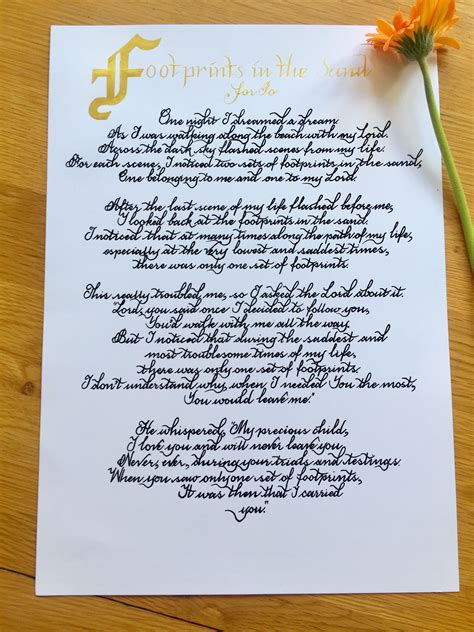 Footprints in the Sand
For Jo
One night I dreamed a dream
As I was walking along the beach with my Lord.
Across the dark sky flashed scenes from my life.
For each scene, I noticed two sets of footprints in the sand,
One belonging to me and one to my Lord.
After the last scene of my life flashed before me,
I looked back at the footprints in the sand.
I noticed that at many times along the path of my life,
especially at the very lowest and saddest times,
there was only one set of footprints.
This really troubled me, so I asked the Lord about it.
"Lord, you said once I decided to follow you,
You'd walk with me all the way.
But I noticed that during the saddest and
most troublesome times of my life,
there was only one set of footprints.
I don't understand why, when I needed You the most,
You would leave me."
He whispered, "My precious child,
I love you and will never leave you
Never, ever, during your trials and testings.
When you saw only one set of footprints,
It was then that I carried
you."